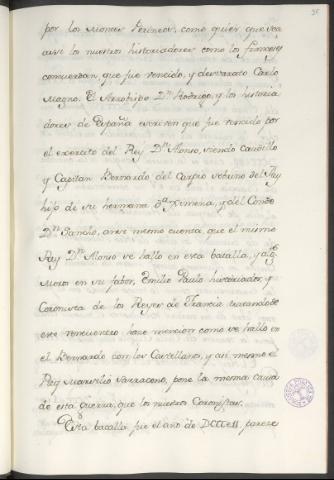 por los Montes Perineos, como quier que sea
assi los nuestros historiadores como los franceses
concuerdan, que fue vencido, y desvaratado Carlo
Magno. El Arzobispo Dn. Rodrigo, y los historia
dores de España escriven que fue vencido por
el exercito del Rey Dn. Alonso, siendo caudillo
y Capitan Bernardo del Carpio sobrino del Rey
hijo de su hermana Da. Ximena, y del Conde
Dn. Sancho, assi mesmo cuenta, que el mismo
Rey Dn. Alonso se hallo en esta batalla, y algs.
Moros en su fabor, Emilio Paulo historiador, y
Coronista de los Reyes de Francia tratando de
este rencuentro hace mencion como se hallo en
el Bernardo con los Castellanos, y asi mesmo el
Rey Marsilio sarraceno, pone la mesma causa
de esta guerra, que los nuestros Coronistas.
Esta batalla fue el año de DCCCXII. parese